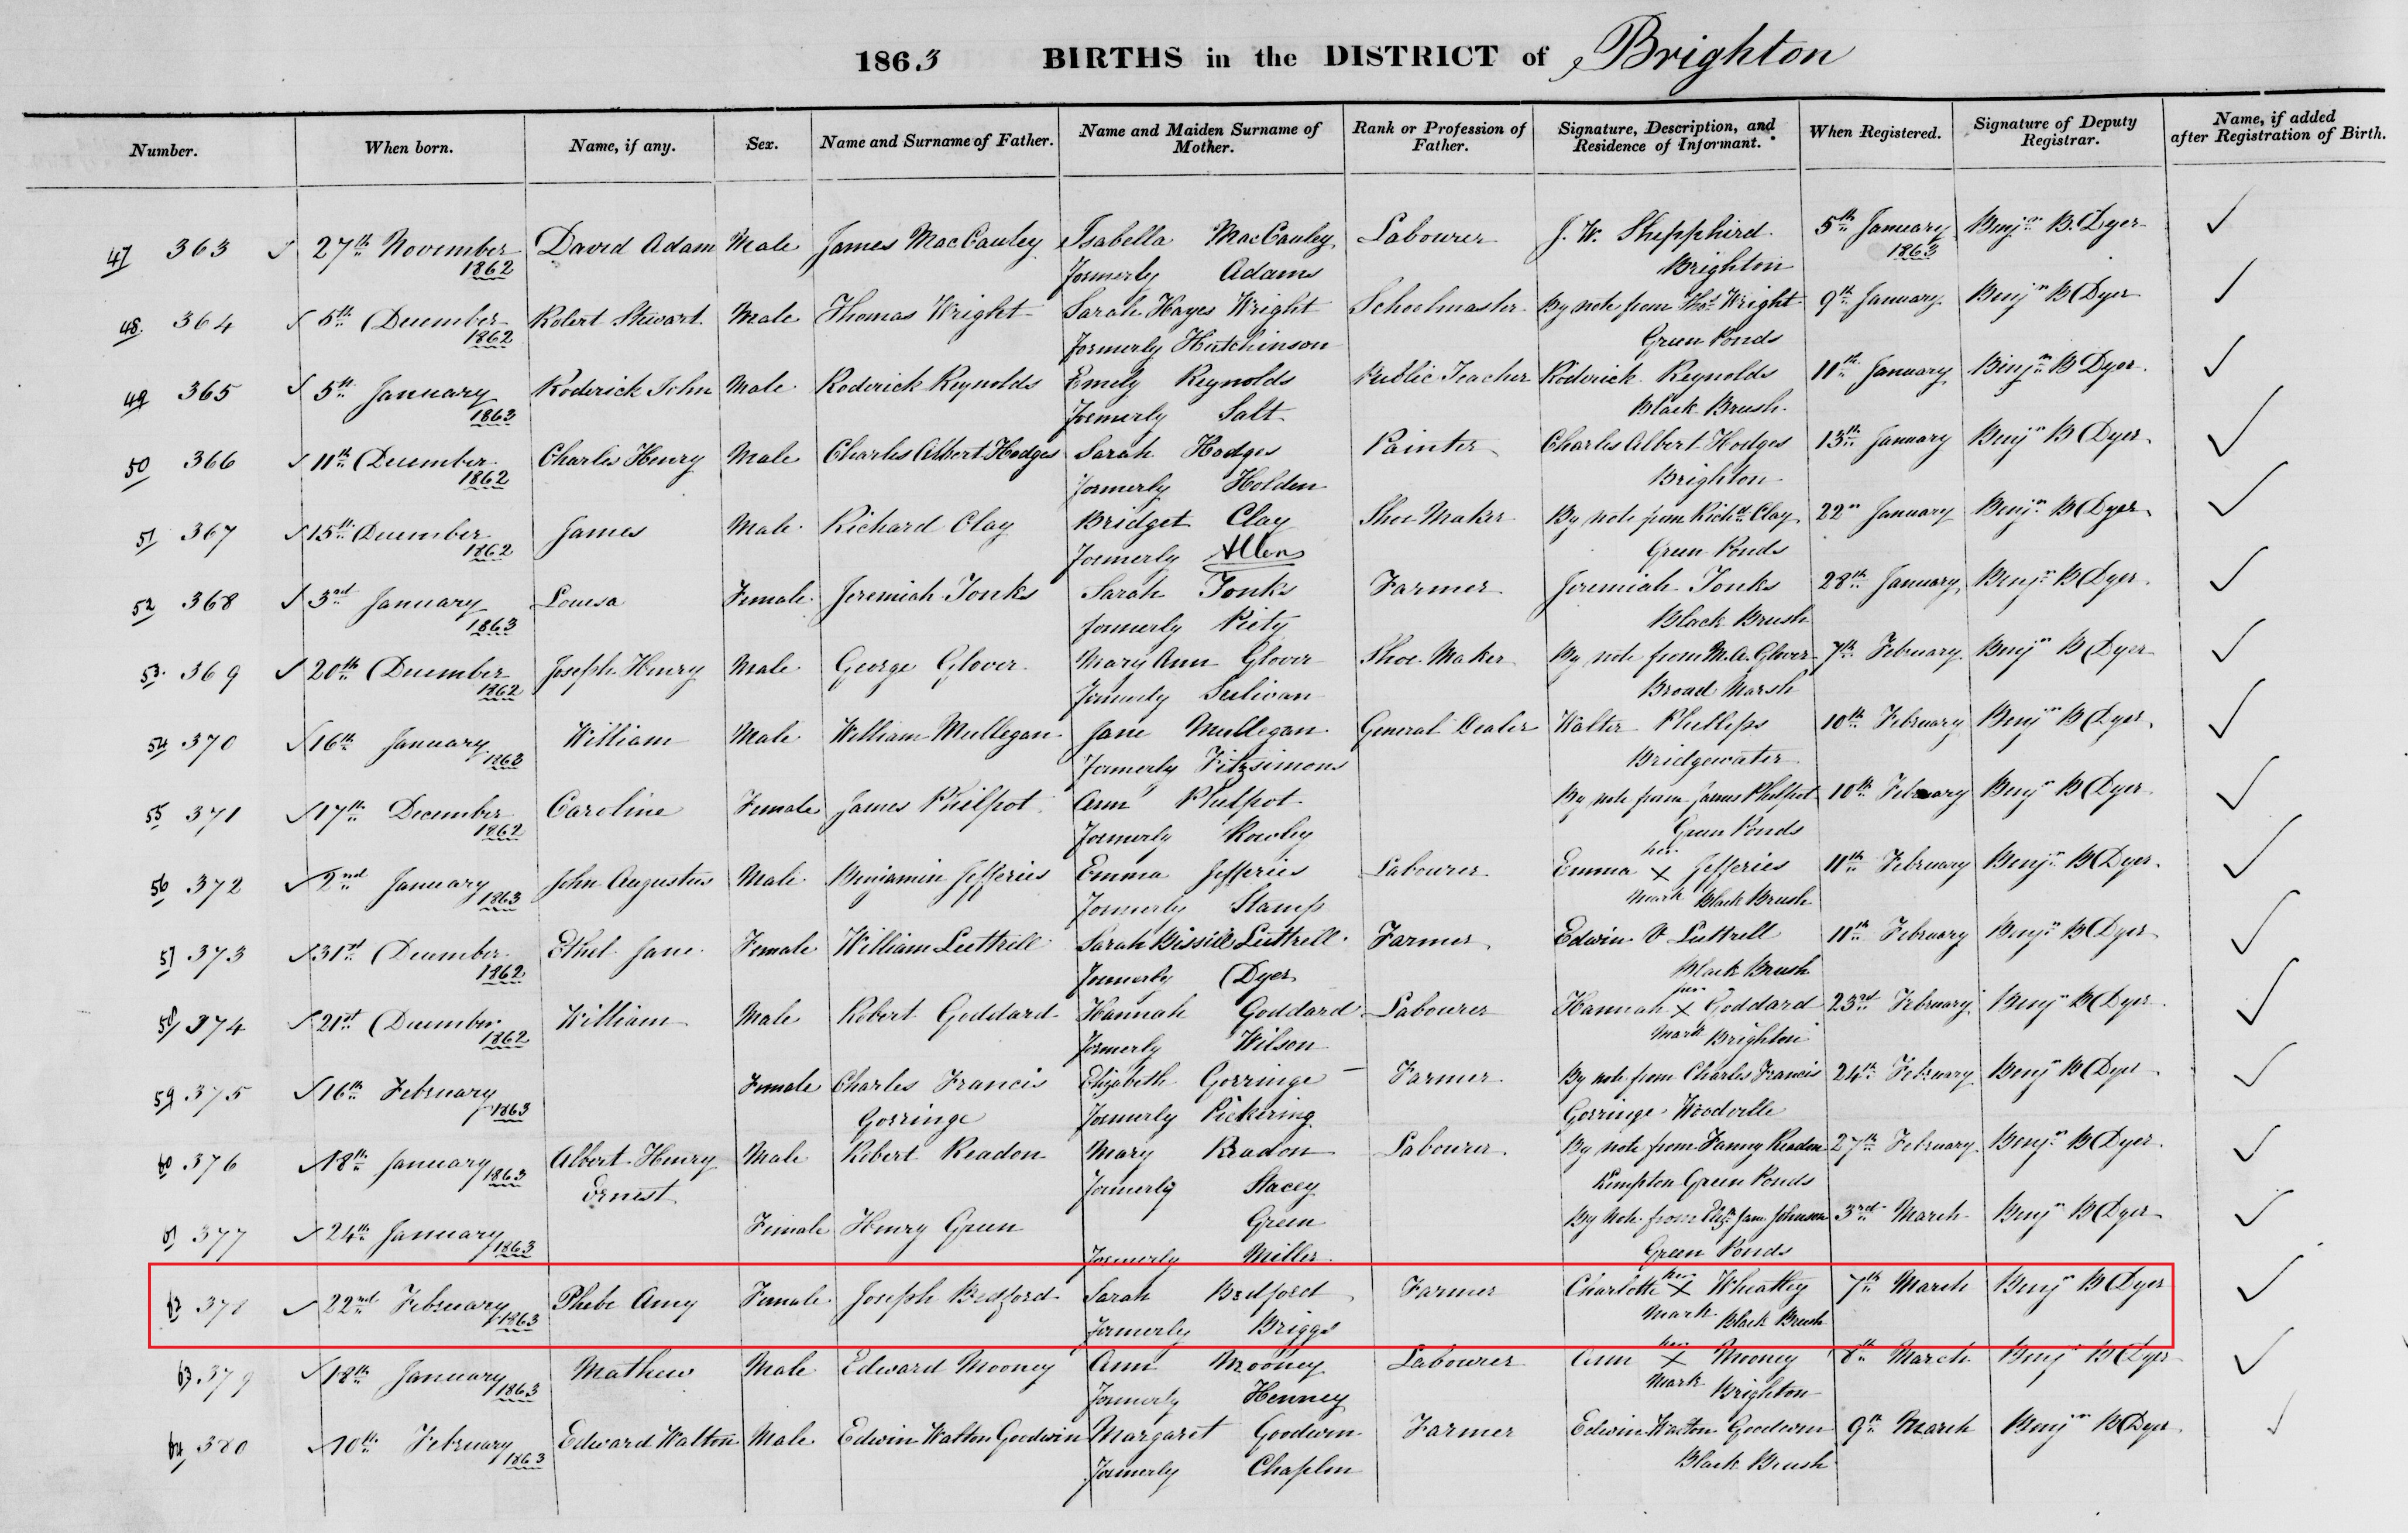 1863 BIRTHS in the DISTRICT of Brighton
Number. When born. Name, if any. Sex. Name and Surname of Father. Name and Maiden Surname of Mother. Rank or Profession of Father. Signature, Description, and Residence of Informant. When Registered. Signature of Deputy Registrar. Name, if added after Registration of Birth.
47 363 ✓ 27th November David Adam Male James MacCauley Isabella MacCauley Labourer J. W. Shepphird 5th January Benjn B. Dyer ✓
1862 formerly Adams Brighton 1863
48. 364 ✓ 5th December Robert Stewart Male Thomas Wright Sarah Hayes Wright Schoolmaster By note from Thos Wright 9th January Benjn B Dyer ✓
1862 formerly Hutchinson Green Ponds
49 365 ✓ 5th January Roderick John Male Roderick Reynolds Emely Reynolds Public Teacher Roderick Reynolds 11th January Benjn B Dyer ✓
1863 formerly Salt Black Brush
50 366 ✓ 11th December Charles Henry Male Charles Albert Hodges Sarah Hodges Painter Charles Albert Hodges 13th January Benjn B Dyer ✓
1862 formerly Holden Brighton
51 367 ✓ 15th December James Male Richard Clay Bridget Clay Shoe Maker By note from Richd Clay 22n January Benjn B Dyer ✓
1862 formerly Allen Green Ponds
52 368 ✓ 3rd January Louisa Female Jeremiah Tonks Sarah Tonks Farmer Jeremiah Tonks 28th January Benjn B Dyer ✓
1863 formerly Piety Black Brush
53. 369 ✓ 20th December Joseph Henry Male George Glover Mary Ann Glover Shoe Maker By note from M. A. Glover 7th February Benjn B Dyer ✓
1862 formerly Sulivan Broad Marsh
54 370 ✓ 16th January William Male William Mullegan Jane Mullegan General Dealer Walter Phillips 10th February Benjn B Dyer ✓
1863 formerly Fitzsimons Bridgewater
55 371 ✓ 17th December Caroline Female James Philpot Ann Philpot By note from James Philpot 10th February Benjn B Dyer ✓
1862 formerly Rowley Green Ponds
her
56 372 ✓ 2nd January John Augustus Male Benjamin Jefferies Emma Jefferies Labourer Emma X Jefferies 11th February Benjn B Dyer ✓
1863 formerly Stamp mark Black Brush
57 373 ✓ 31st December Ethel Jane Female William Luttrell Sarah Bissill Luttrell Farmer Edwin O Luttrell 11th February Benjn B Dyer ✓
1862 formerly Dyer Black Brush
her
58 374 ✓ 21st December William Male Robert Goddard Hannah Goddard Labourer Hannah X Goddard 23rd February Benjn B Dyer ✓
1862 formerly Wilson mark Brighton
59 375 ✓ 16th February Female Charles Francis Elizabeth Gorringe Farmer By note from Charles Francis 24th February Benjn B Dyer ✓
1863 Gorringe formerly Pickering Gorringe Woodville
60 376 ✓ 18th January Albert Henry Male Robert Readon Mary Readon Labourer By note from Fanny Readon 27th February Benjn B Dyer ✓
1863 Ernest formerly Stacey Kempton Green Ponds
61 377 ✓ 24th January Female Henry Green Green By Note from Jam Johnson 3rd March Benjn B Dyer ✓
1863 formerly Miller Green Ponds
her
62 378 ✓ 22nd February Phebe Amy Female Joseph Bedford Sarah Bedford Farmer Charlotte X Wheatley 7th March Benjn B Dyer ✓
1863 formerly Briggs mark Black Brush
her
63. 379 ✓ 18th January Mathew Male Edward Mooney Ann Mooney Labourer Ann X Mooney 8th March Benjn B Dyer ✓
1863 formerly Henney mark Brighton
64 380 ✓ 10th February Edward Walton Male Edwin Walton Goodwin Margaret Goodwin Farmer Edwin Walton Goodwin 9th March Benjn B Dyer ✓
1863 formerly Chaplin Black Brush